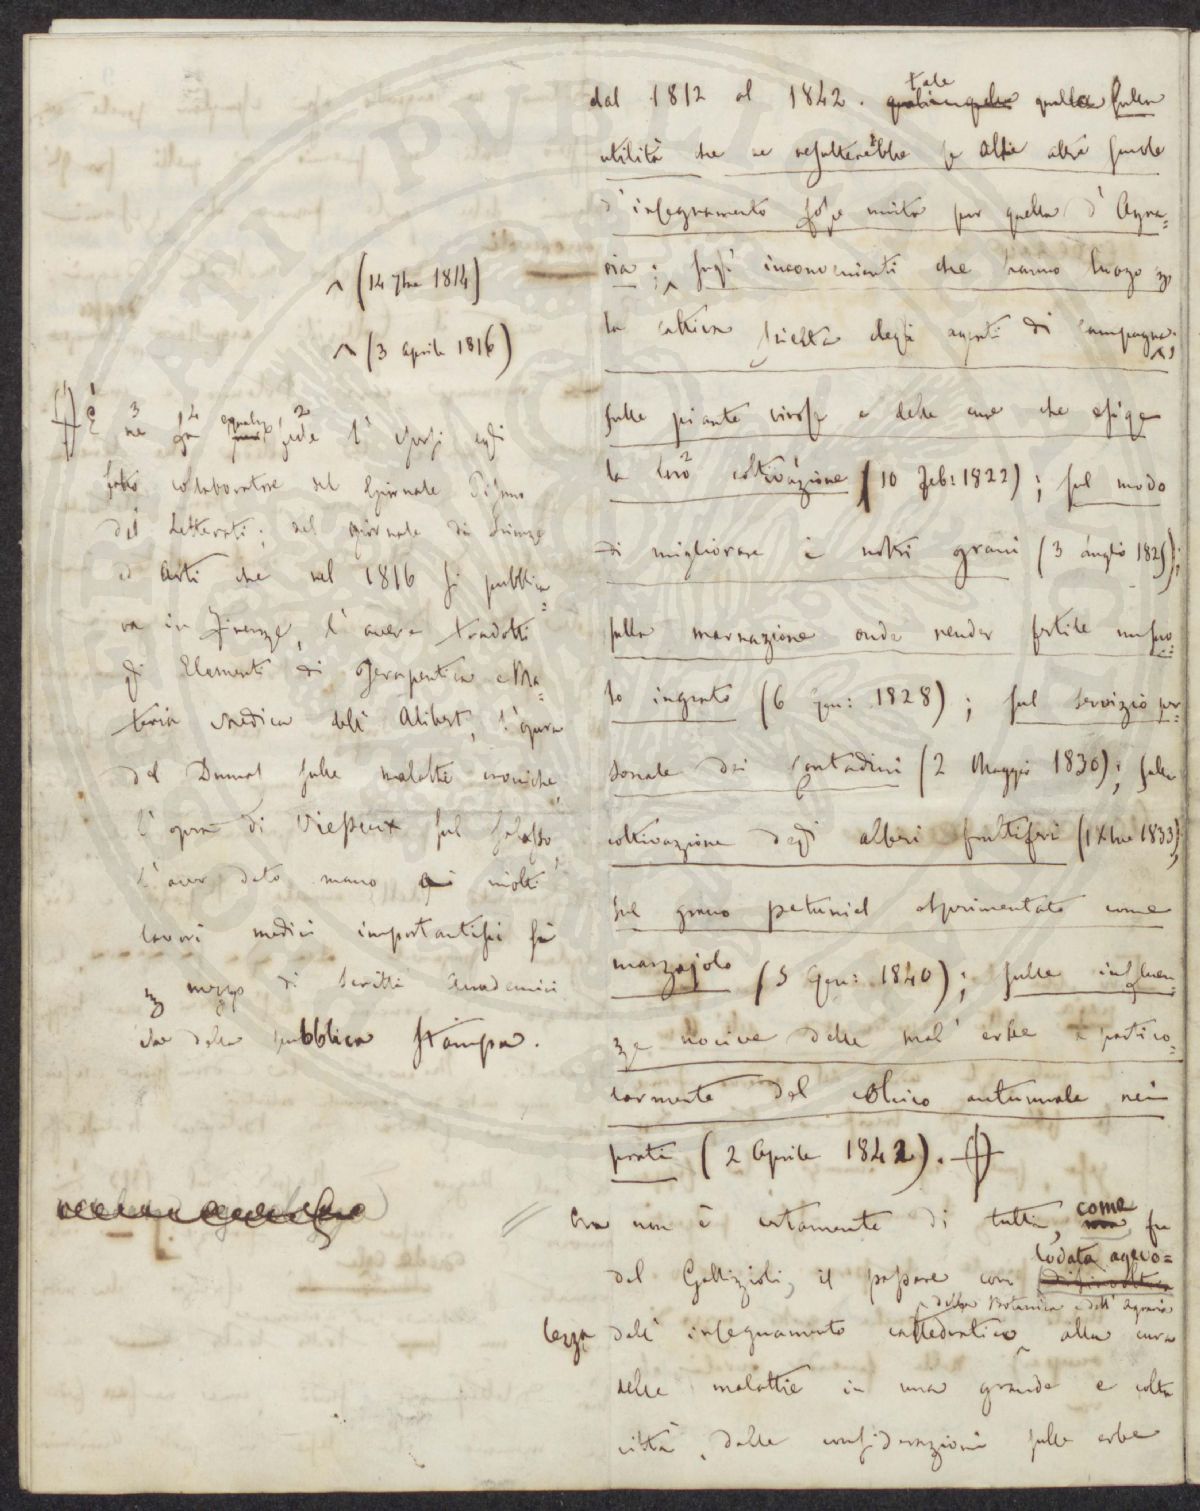 dal 1812 al 1842. tale quella sulla
utilità che ne risulterebbe se alle altre scuole
d'insegnamento fosse unita pur quella d'Agra=
ria; sugl'inconvenienti che hanno luogo per
la cattiva scielta degli agenti di campagna;
sulle piante virose e delle cure che esige
la loro coltivazione (10 Feb: 1822); sul modo
di migliorare i nostri grani (3 luglio 1825);
sulla marnazione onde render fertile un suo
lo ingrato (6 Gen: 1828); sul servizio per
sonale dei Contadini (2 Maggio 1830); sulla
coltivazione degl'alberi fruttiferi (1 Xbre 1833);
sul grano petaniel esperimentato come
marzajolo (5 Gen: 1840); sulle influen
ze nocive delle mal'erbe e partico=
larmente del colchico autunnale nei
prati (2 Aprile 1842).
Ora non è certamente di tutti, come fu
del Gallizioli, il passare con lodata agevo=
lezza dall'insegnamento cattedratico della Botanica e dell'Agraria alla cura
delle malattie in una grande e colta
città, dalle considerazioni sulle erbe
(14 7bre 1814)
(3 aprile 1816)
E ne fa egualmente fede l'essersi egli
fatto collaboratore del Giornale Pisano
dei Letterati; del giornale di Scienze
ed Arti che nel 1816 si pubblica=
va in Firenze, l'avere tradotti
gli Elementi di Terapeutica e Ma=
teria Medica dell'Alibert, l'opera
del Dumas sulle malattie croniche,
l'opera di Vieusseux sul salasso,
l'aver dato mano a molti
lavori medici importantissimi sia
per mezzo di scritti Accademici
che della pubblica stampa.